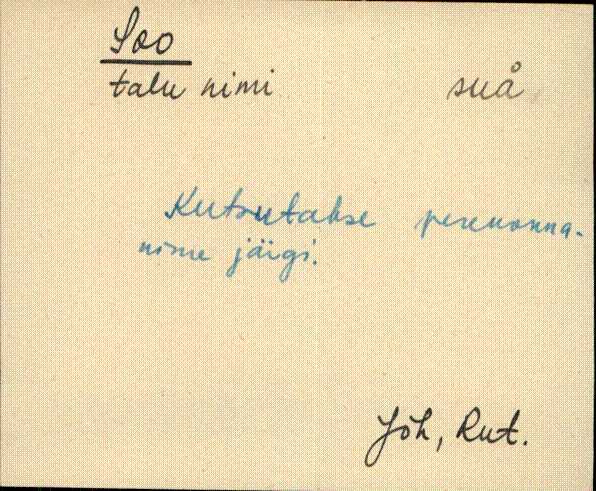 Soo
talu nimi suå
Kutsutakse perekonna-
nime järgi.
Jõh, Rut.